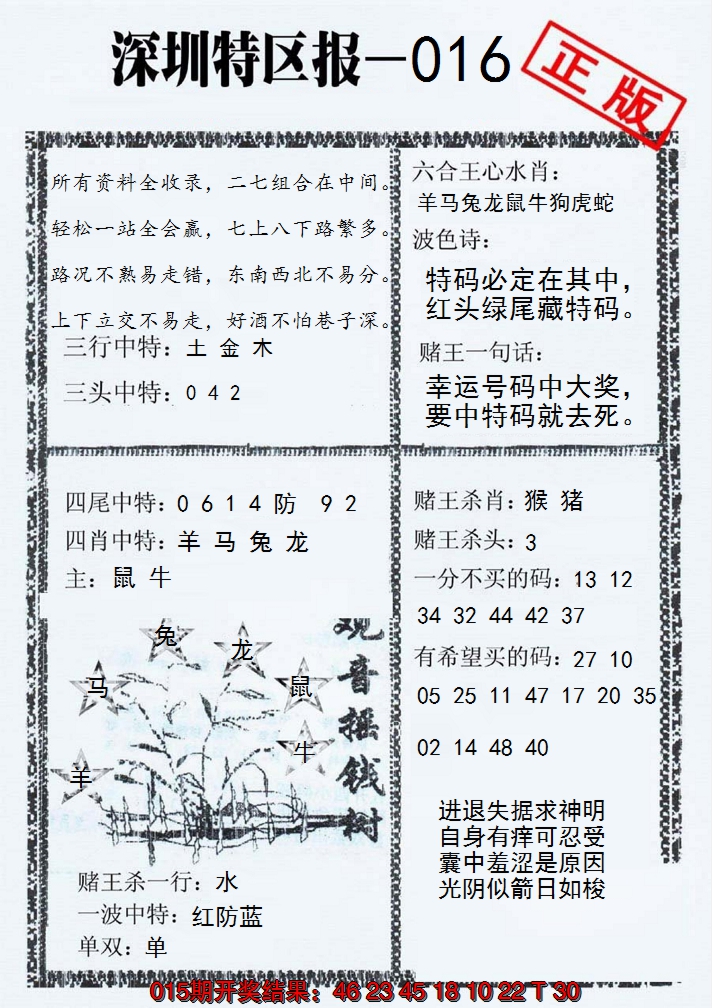 深圳特区报—016
正版
所有资料全收录，二七组合在中间。
轻松一站全会赢，七上八下路繁多。
路况不熟易走错，东南西北不易分。
上下立交不易走，好酒不怕巷子深。
三行中特：土 金 木
三头中特：0 4 2
六合王心水肖：
羊马兔龙鼠牛狗虎蛇
波色诗：
特码必定在其中，
红头绿尾藏特码。
赌王一句话：
幸运号码中大奖，
要中特码就去死。
四尾中特：0 6 1 4 防 9 2
四肖中特：羊 马 兔 龙
主：鼠 牛
兔
龙
马
鼠
牛
羊
观音摇钱树
赌王杀一行：水
一波中特：红防蓝
单双：单
赌王杀肖：猴 猪
赌王杀头：3
一分不买的码：13 12
34 32 44 42 37
有希望买的码：27 10
05 25 11 47 17 20 35
02 14 48 40
进退失据求神明
自身有痒可忍受
囊中羞涩是原因
光阴似箭日如梭
015期开奖结果：46 23 45 18 10 22 T 30